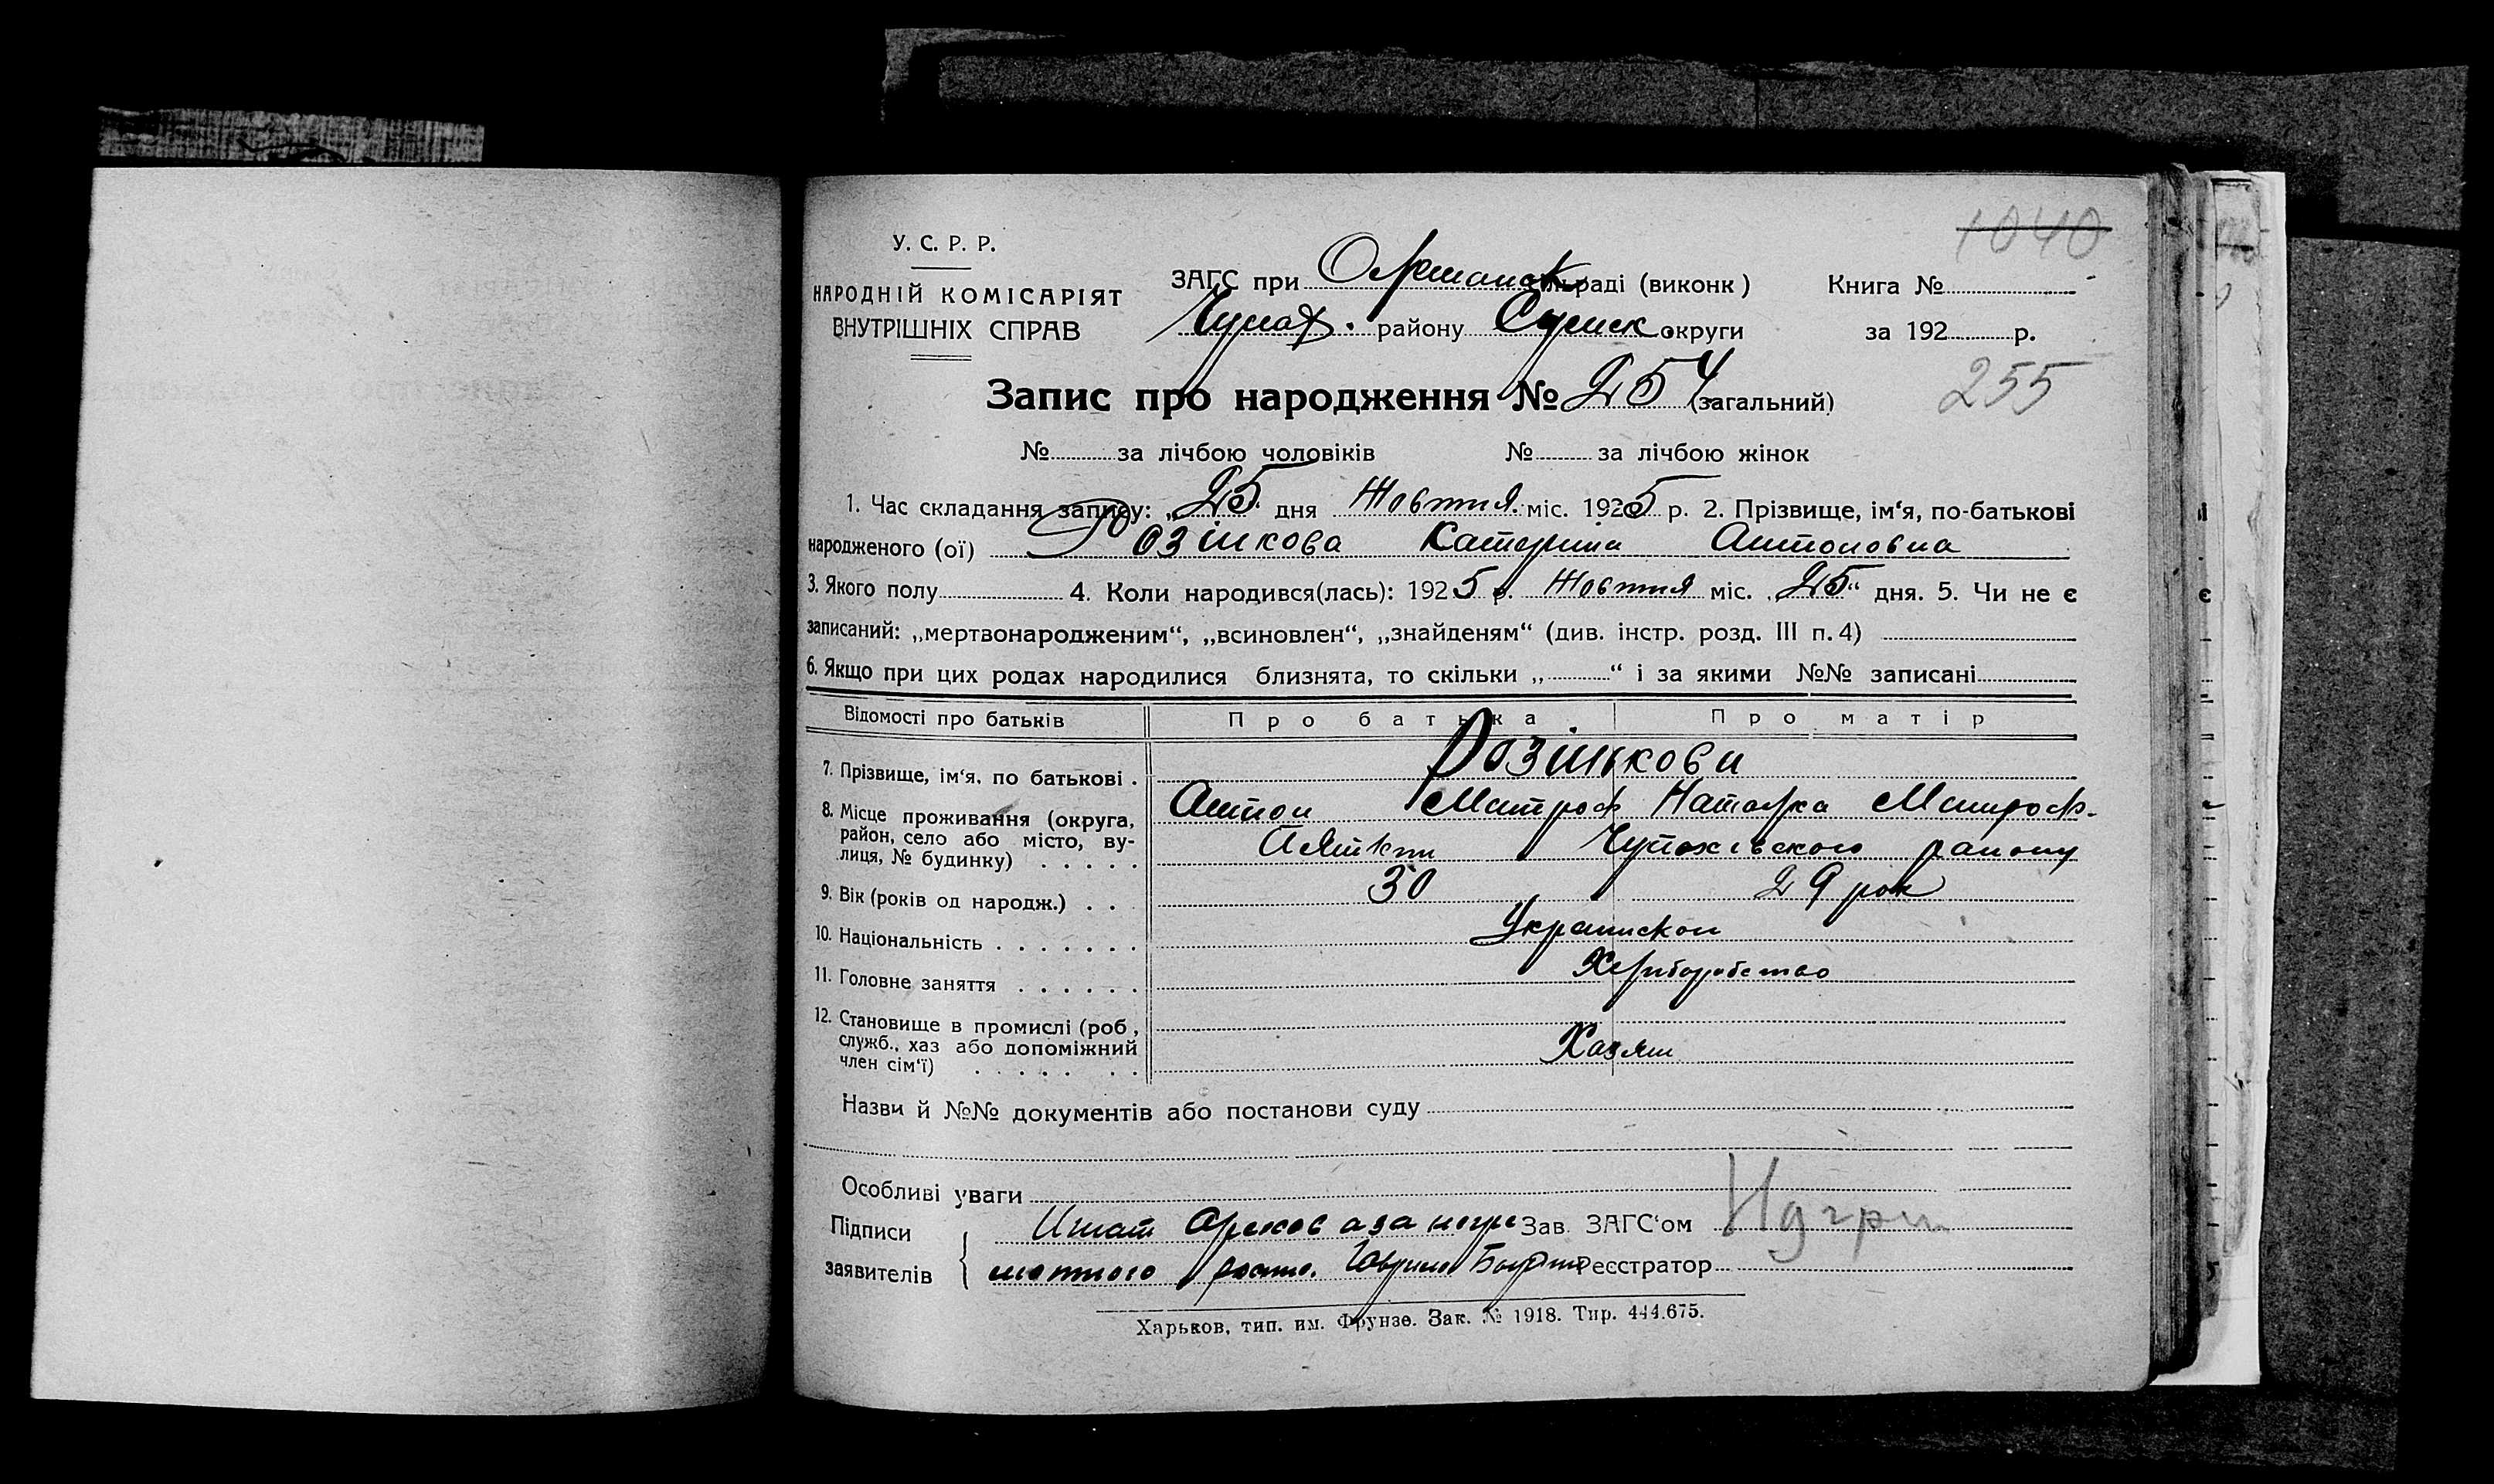 1040
У. С. Р. Р.
НАРОДНІЙ КОМІСАРІЯТ
ВНУТРІШНІХ СПРАВ
ЗАГС при раді (виконк) Книга №
Чупах. району Сумск округи за 192 р.
Запис про народження № 254 (загальний)
255
№ за лічбою чоловіків № за лічбою жінок
1. Час складання запису: „25“ дня Жовтня міс. 1925 р. 2. Прізвище, ім‘я, по-батькові
народженого (ої) Розінкова Катерина Антоновна
3. Якого полу 4. Коли народився(лась): 1925 р. Жовтня міс. „25“ дня. 5. Чи не є
записаний: „мертвонародженим“, „всиновлен“, „знайденям“ (див. інстр. розд. III п. 4)
6. Якщо при цих родах народилися близнята, то скільки „ “ і за якими №№ записані
Відомості про батьків Про батька Про матір
7. Прізвище, ім‘я, по батькові . Розінкови
Антон Митроф Наталка Митроф.
8. Місце проживання (округа,
район, село або місто, ву-
лиця, № будинку) . . . . . Чупахівского району
9. Вік (років од народж.) . . . 30 29 рок
10. Національність . . . . . . . Украинскои
11. Головне заняття . . . . . . Хлиборобство
12. Становище в промислі (роб,
служб., хаз або допоміжний
член сім‘ї) . . . . . . . Хазяин
Назви й №№ документів або постанови суду
Особливі уваги
Підписи Игнат а за негра Зав. ЗАГС‘ом
заявителів мотного роспис. Гаврило Реєстратор
Харьков, тип. им. Фрунзе. Зак. № 1918. Тир. 444.675.